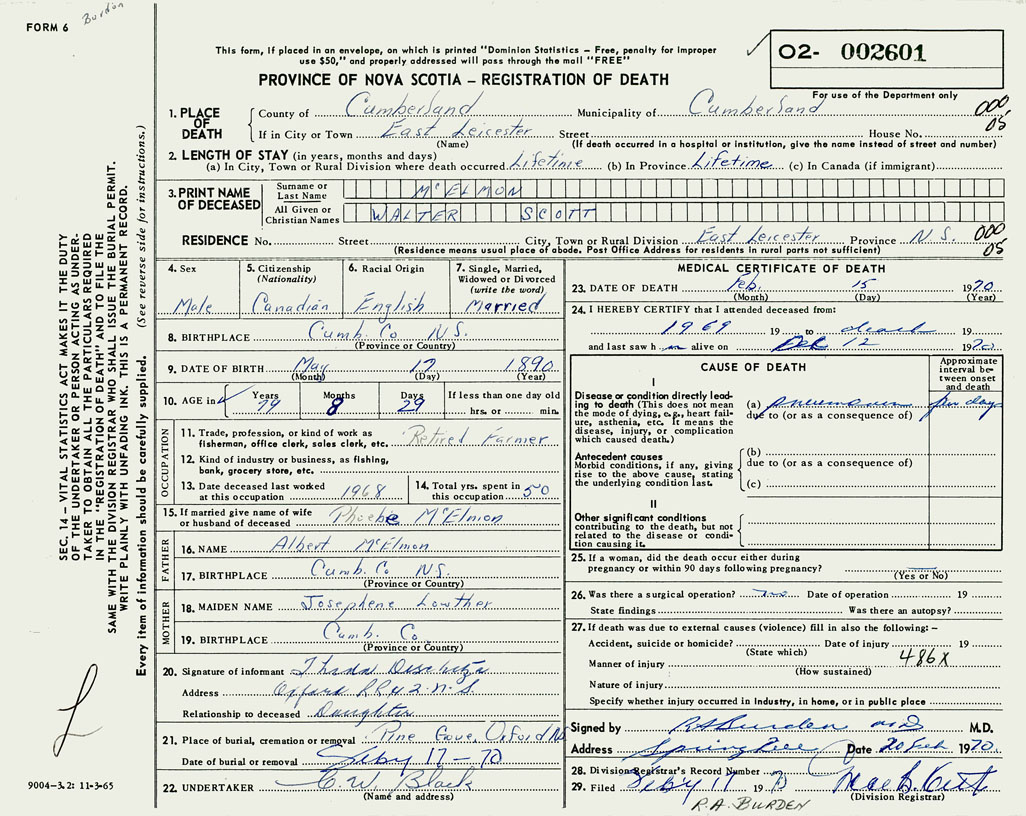 Burdon
FORM 6
This form, if placed in an envelope, on which is printed "Dominion Statistics – Free, penalty for improper
use $50," and properly addressed will pass through the mail "FREE"
PROVINCE OF NOVA SCOTIA – REGISTRATION OF DEATH
02- 002601
For use of the Department only
1. PLACE OF DEATH
County of Cumberland Municipality of Cumberland 000
If in City or Town East Leicester Street House No. 05
(Name) (If death occurred in a hospital or institution, give the name instead of street and number)
2. LENGTH OF STAY (in years, months and days)
(a) In City, Town or Rural Division where death occurred Lifetime (b) In Province Lifetime (c) In Canada (if immigrant)
3. PRINT NAME OF DECEASED
Surname or Last Name McELMON
All Given or Christian Names WALTER SCOTT
RESIDENCE No. Street City, Town or Rural Division East Leicester Province N.S. 000
(Residence means usual place of abode. Post Office Address for residents in rural parts not sufficient) 05
4. Sex
Male
5. Citizenship
(Nationality)
Canadian
6. Racial Origin
English
7. Single, Married,
Widowed or Divorced
(write the word)
Married
8. BIRTHPLACE Cumb. Co N.S.
(Province or Country)
9. DATE OF BIRTH May 17 1890
(Month) (Day) (Year)
10. AGE in Years Months Days If less than one day old
79 8 29 hrs. or min.
OCCUPATION
11. Trade, profession, or kind of work as
fisherman, office clerk, sales clerk, etc. Retired Farmer
12. Kind of industry or business, as fishing,
bank, grocery store, etc.
13. Date deceased last worked
at this occupation 1968
14. Total yrs. spent in
this occupation 50
15. If married give name of wife
or husband of deceased Phoebe McElmon
FATHER
16. NAME Albert McElmon
17. BIRTHPLACE Cumb. Co N.S.
(Province or Country)
MOTHER
18. MAIDEN NAME Josephene Lowther
19. BIRTHPLACE Cumb. Co.
(Province or Country)
20. Signature of informant
Address Oxford RR 2 N.S.
Relationship to deceased Daughter
21. Place of burial, cremation or removal Pine Grove, Oxford NS
Date of burial or removal Feby 17 – 70
22. UNDERTAKER C. W. Black
(Name and address)
MEDICAL CERTIFICATE OF DEATH
23. DATE OF DEATH Feb. 15 1970
(Month) (Day) (Year)
24. I HEREBY CERTIFY that I attended deceased from:
1969 19 to death 19
and last saw h im alive on Feb 12 1970
CAUSE OF DEATH
Approximate
interval be-
tween onset
and death
I
Disease or condition directly lead-
ing to death (This does not mean
the mode of dying, e.g., heart fail-
ure, asthenia, etc. It means the
disease, injury, or complication
which caused death.)
(a) pneumonia few days
due to (or as a consequence of)
Antecedent causes
Morbid conditions, if any, giving
rise to the above cause, stating
the underlying condition last.
(b)
due to (or as a consequence of)
(c)
II
Other significant conditions
contributing to the death, but not
related to the disease or condi-
tion causing it.
25. If a woman, did the death occur either during
pregnancy or within 90 days following pregnancy?
(Yes or No)
26. Was there a surgical operation? no Date of operation 19
State findings Was there an autopsy?
27. If death was due to external causes (violence) fill in also the following: –
Accident, suicide or homicide? Date of injury 19
(State which) 486X
Manner of injury
(How sustained)
Nature of injury
Specify whether injury occurred in industry, in home, or in public place
Signed by RA Burden M.D. M.D.
Address Springhill Date 20 Feb 1970
28. Division Registrar's Record Number
29. Filed Feby 17 1970
(Division Registrar)
R.A. BURDEN
SEC. 14 – VITAL STATISTICS ACT MAKES IT THE DUTY
OF THE UNDERTAKER OR PERSON ACTING AS UNDER-
TAKER TO OBTAIN ALL THE PARTICULARS REQUIRED
IN THE "REGISTRATION OF DEATH" AND TO FILE THE
SAME WITH THE DIVISION REGISTRAR WHO SHALL ISSUE THE BURIAL PERMIT.
WRITE PLAINLY WITH UNFADING INK. THIS IS A PERMANENT RECORD.
Every item of information should be carefully supplied. (See reverse side for instructions.)
9004-3.2: 11-3-65